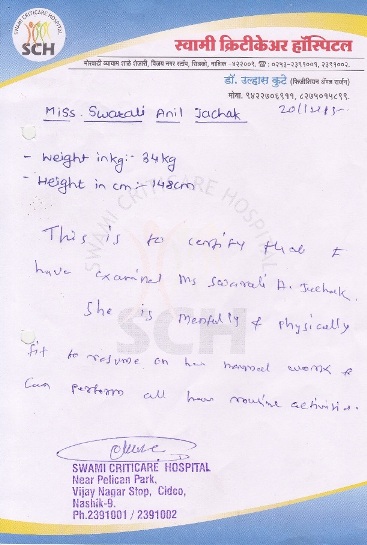 SWAMI CRITICARE HOSPITAL
SCH
स्वामी क्रिटीकेअर हॉस्पिटल
मोरवाडी व्यायाम शाळे शेजारी, विजय नगर स्टॉप, सिडको, नाशिक - ४२२००९. ☎: ०२५३-२३९१००१, २३९१००२.
डॉ. उल्हास कुटे (फिजीशियन अ‍ॅण्ड सर्जन)
मोबा. ९४२२७०६९११, ८२७५०१५८९९.
Miss. Swarali Anil Jachak
- Weight in kg :- 34kg
- Height in cm :- 148cm
This is to certify that I
have examined Ms Swarali A. Jachak.
She is Mentally & physically
fit to resume on her normal work &
Can perform all her routine activities.
SWAMI CRITICARE HOSPITAL
SCH
SWAMI CRITICARE HOSPITAL
Near Pelican Park,
Vijay Nagar Stop, Cidco,
Nashik-9.
Ph.2391001 / 2391002